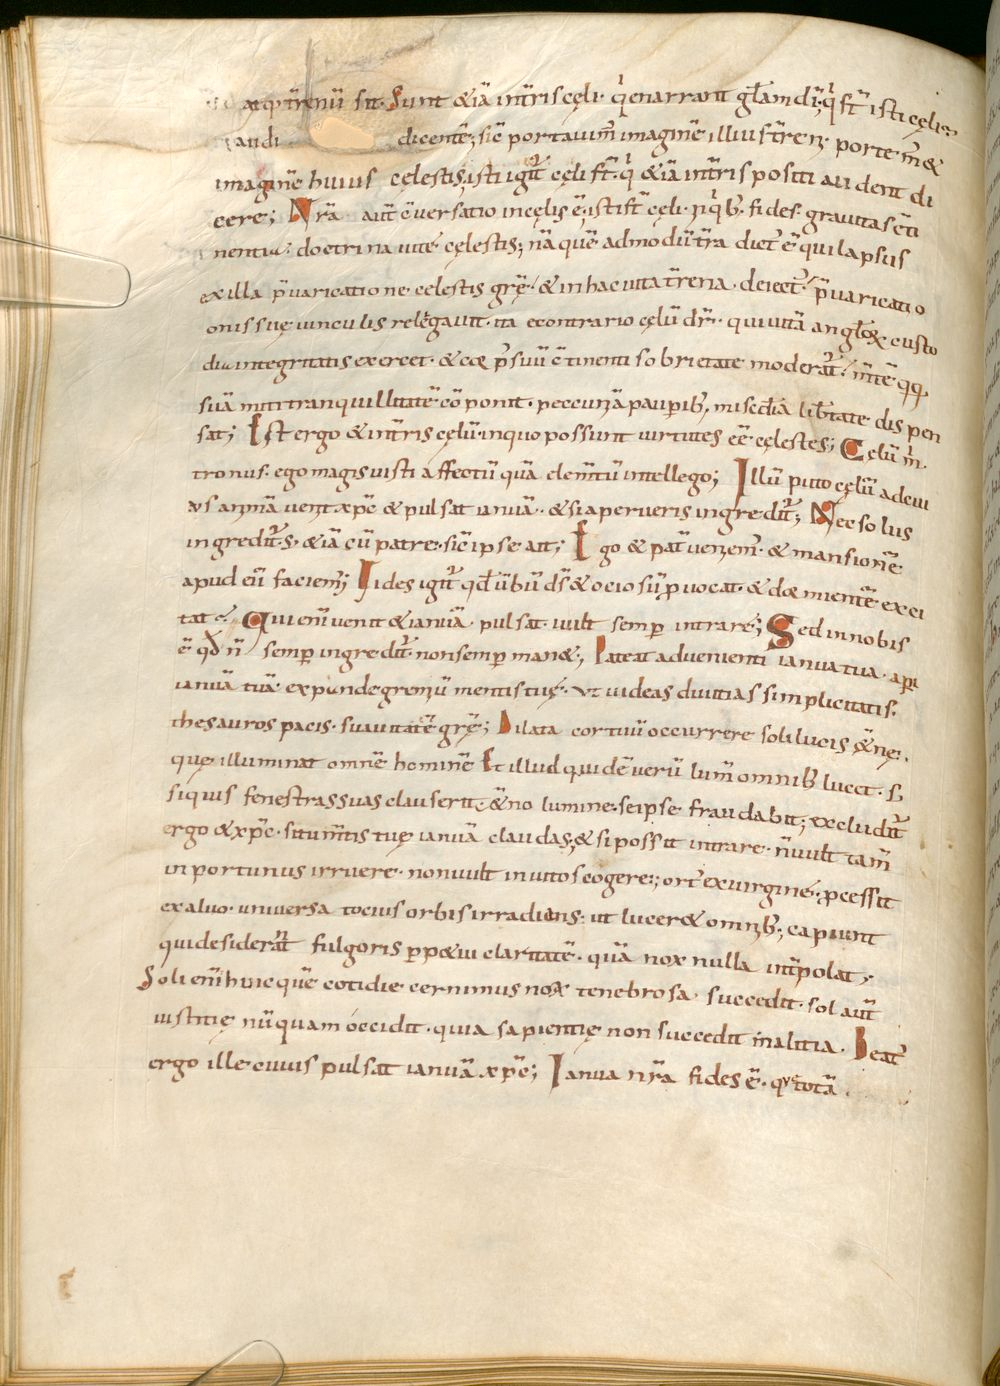 atq; t̄renū sit. Sunt &iā int̄ris cęli. q̇ enarrant gl̄am dī; q̇ st̄ isti cęli
audi dicentē; sic̄ portauim̄ imaginē illius t̄reni. portem̄ &
imaginē huius cęlestis; isti igit̄ cęli st̄. q̇ &iā int̄ris positi audent di
cere; Nr̄a aut̄ c̄uersatio in cęlis ē; isti st̄ cęli. in q̇b; fides. grauitas c̄ti
nentia. doctrina uitę cęlestis; nā quē admodū t̄ra dict̄ ē qui lapsus
ex illa p̄uaricatione celestis gr̄ę. & in hac uita t̄rena. deiect̄. p̄uaricatio
onis suę uinculis religauit. ita econtrario cęlū dr̄. qui uitā angl̄oꝝ custo
dia integritatis exercet. & cor p̄ suū c̄tinenti sobrietate moderat̄. m̄tē q;q;
suā miti tranquillitatē cōponit. peccuniā paup̄ib; misc̄dia lib̄tate dispen
sat; Est ergo & int̄ris cęlū. in quo possunt uirtutes ēē cęlestes; Cęlū m̄.
tronus. ego magis iusti affectū quā elem̄tū intellego; Illū puto cęlū ad cui
us animā uenit xp̄c & pulsat ianuā. & si aperueris ingredit̄; Nec solus
ingredit̄. s; &iā cū patre. sic̄ ipse ait; Ego & pat̄ ueniem̄. & mansionē
apud eū faciem̄; Uides igit̄ qd̄ ūbū dī & ociosū p̄uocat. & dormientē exci
tat. Qui eni uenit & ianuā pulsat. uult semp̄ intrare; Sed in nobis
ē qd̄ n̄ semp̄ ingredit̄. non semp̄ man&; Pateat aduenienti ianua tua. aperi
ianuā tuā expande gremiū mentis tuę. ut uideas diuitias simplicitatis.
thesauros pacis. suauitatē gr̄ę; Dilata cor tuū occurrere soli lucis &̄nę.
quę illuminat omnē hominē Et illud quidē uerū lum̄ omnib; lucet. S;
siquis fenestras suas clauserit. &̄no lumine. seipse fraudabit; excludit̄
ergo & xp̄c. si tu m̄tis tuę ianuā claudas; & si possit intrare. n̄ uult tam̄
inportunus irruere. non uult inuitos cogere; ort̄ ex uirgine. p̄cessit
ex aluo. uniuersa tocius orbis irradians: ut lucer& omnib; capiunt
qui desiderat̄ fulgoris p̄p&ui claritatē. quā nox nulla int̄polat;
Soli eni huic quē cotidie cernimus nox tenebrosa succedit. sol aut̄
iustitię nūquam occidit. quia sapientię non succedit malitia. Beat̄
ergo ille cuius pulsat ianuā xp̄c; Ianua nr̄a fides ē. quę totā